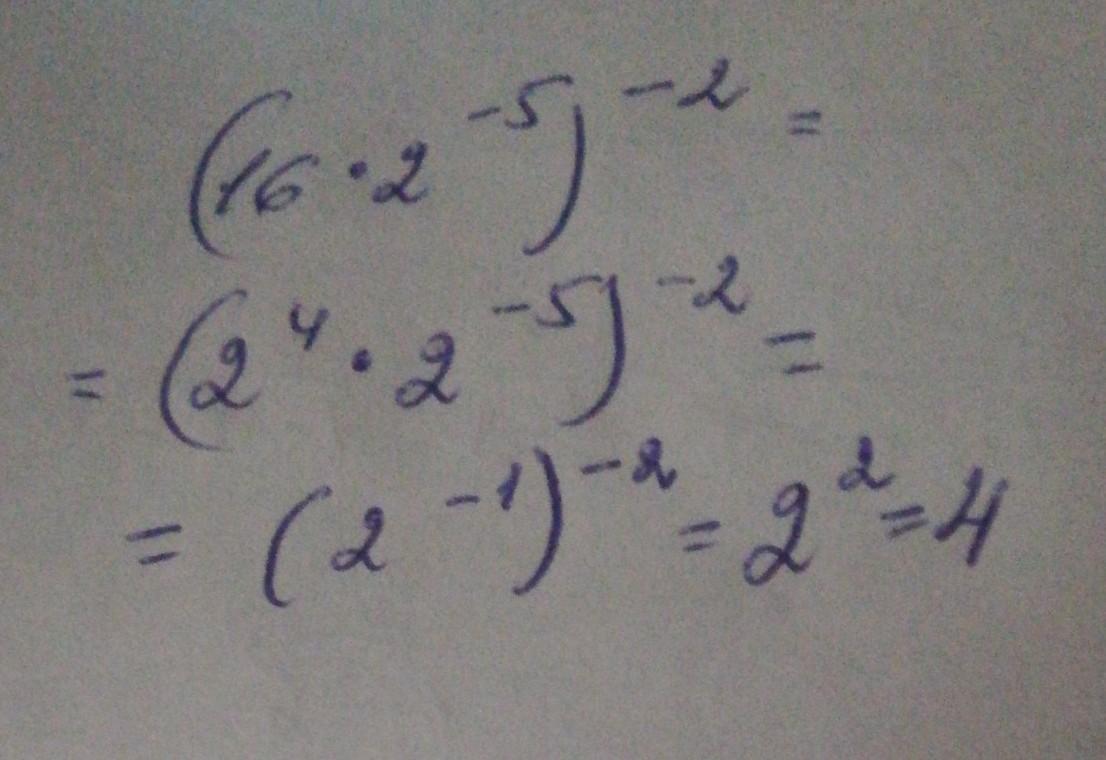 (16 · 2⁻⁵)⁻² =
= (2⁴ · 2⁻⁵)⁻² =
= (2⁻¹)⁻² = 2² = 4